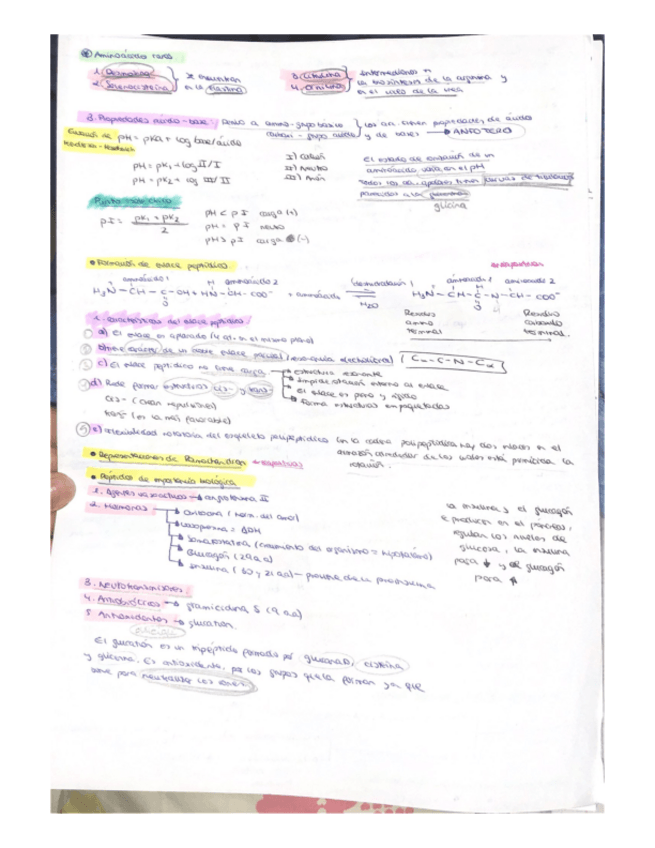 Aminoácidos raros
1. Desmosina
2. Selenocisteína } se encuentran en la elastina
3. Citrulina
4. Ornitina } intermediarios en la biosíntesis de la arginina y en el ciclo de la urea
3. Propiedades ácido-base: debido a amino-grupo básico
carboxi-grupo ácido } los aa. tienen propiedades de ácido y de bases → ANFÓTERO
Ecuación de pH = pKa + log base/ácido
pH = pK1 + log II/I
pH = pK2 + log III/II
I) Catión
II) Neutro
III) Anión
El estado de ionización de un
aminoácido varía en el pH
Todos los aa. apolares tienen curvas de titulación
parecidos a la
glicina
Punto isoeléctrico
pI = pK1 + pK2 / 2
pH < pI carga (+)
pH = pI neutro
pH > pI carga (-)
• Formación de enlace peptídico
aminoácido 1 aminoácido 2
H3N - CH - C - OH + HN - CH - COO-
H2O
aminoácido 1 aminoácido 2
H3N - CH - C - N - CH - COO-
Residuo amino terminal
Residuo carboxilo terminal.
1. Características del enlace peptídico
a) El enlace es (4 at. en el mismo plano)
b) tiene carácter de un doble enlace parcial (resonancia electrónica) (Cα - C - N - Cα)
c) El enlace peptídico no tiene carga
estructura resonante
impide rotación interna al enlace
El enlace es plano y rígido
forma estructuras empaquetadas
d) Puede formar estructuras cis- y trans-
cis- (crean repulsiones)
trans- (es la más favorable)
e) rotatoria del esqueleto polipeptídico
• Representaciones de Ramachandran
• Péptidos de importancia biológica
1. Agentes vasoactivos → angiotensina II
2. Hormonas
oxitocina (horm. del amor)
vasopresina = ADH
Somatostatina (crecimiento del organismo = hipotálamo)
Glucagón (29 aa)
insulina (30 y 21 aa) - proviene de la proinsulina
La insulina y el glucagón
se producen en el páncreas,
regulan los niveles de
glucosa, la insulina
para ↓ y el glucagón
para ↑
3. Neurotransmisores
4. Antibióticos → gramicidina S (9 aa)
5. Antioxidantes → glutation
El glutatión es un tripéptido formado por glutamato, cisteína
y glicina. Es antioxidante, por los grupos que la forman ya que
sirve para neutralizar los